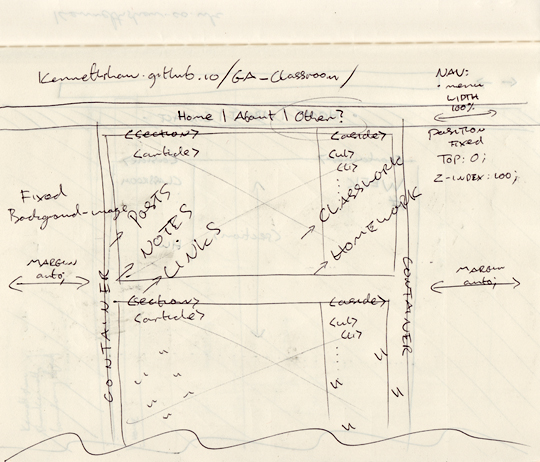 kennethshaw.github.io/GA_Classroom/
NAV:
• menu
WIDTH
100%
Home | About | Other?
POSITION
FIXED
TOP: 0;
Z-INDEX: 100;
<section>
<article>
<aside>
<ul>
<li>
Fixed
Background-image
POSTS
NOTES
LINKS
CLASSWORK
HOMEWORK
MARGIN
auto;
CONTAINER
CONTAINER
MARGIN
auto;
<section>
<article>
<aside>
<ul>
<li>